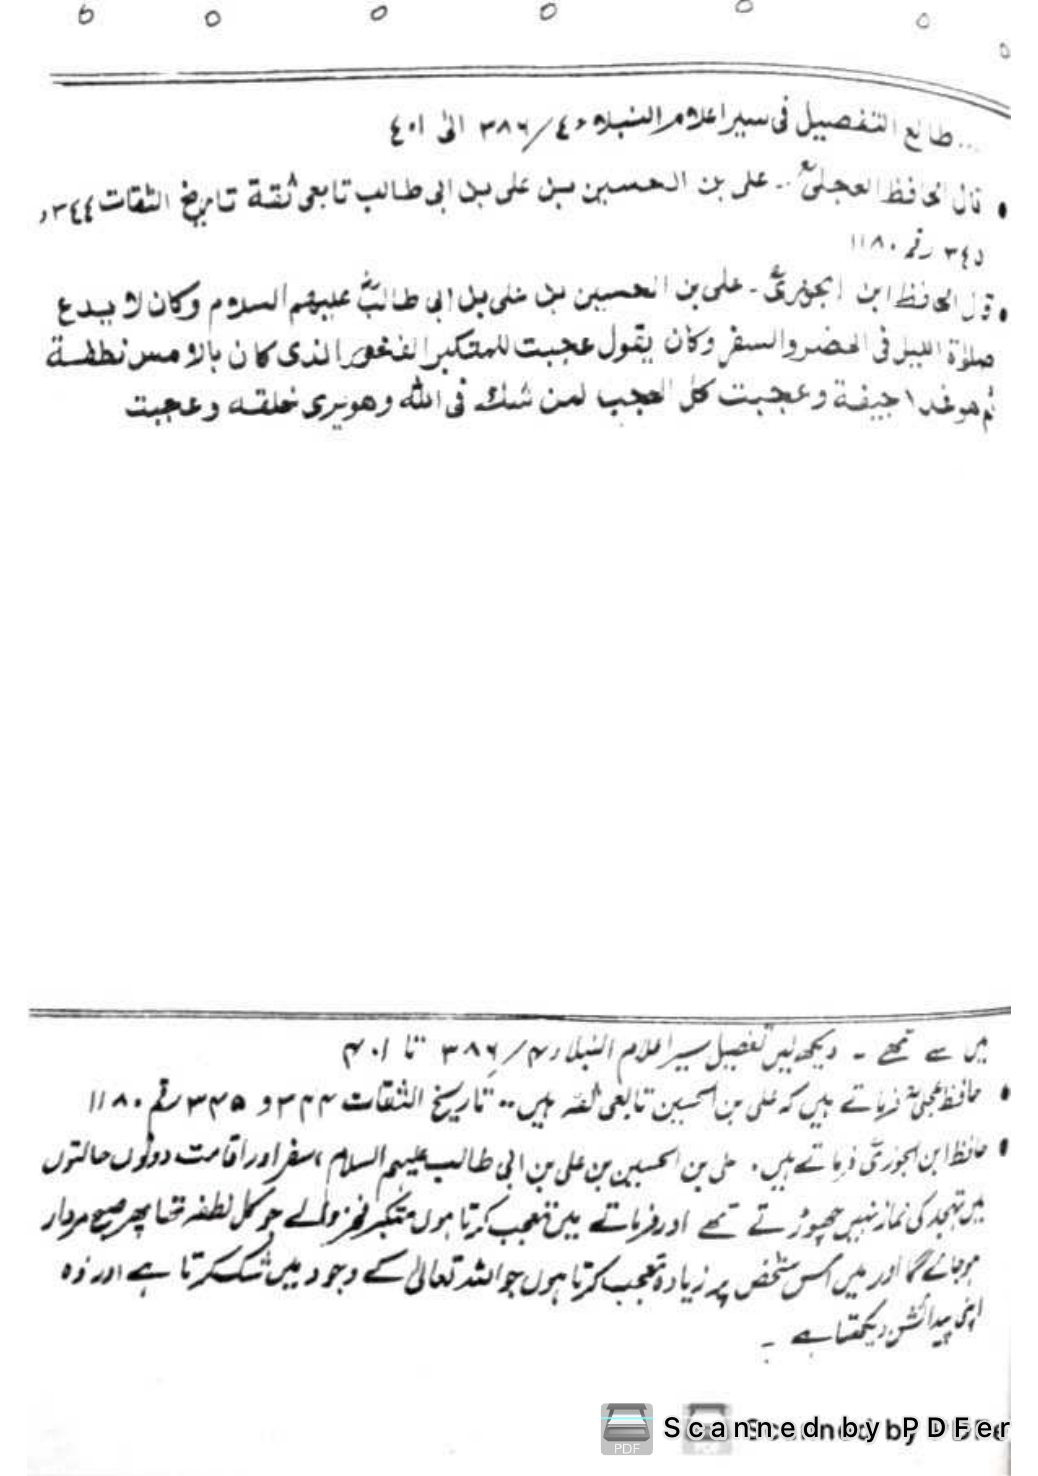 ... طالع التفصیل فی سیر اعلام النبلاء ٤/٣٨٦ الی ٤٠١
• قال الحافظ العجلیؒ .. علی بن الحسین بن علی بن ابی طالب تابعی ثقة تاریخ الثقات ٣٤٤ و
٣٤٥ رقم ١١٨٠
• قال الحافظ ابن الجوزیؒ ۔ علی بن الحسین بن علی بن ابی طالبؓ علیهم السلام وکان لا یدع
صلوٰة اللیل فی الحضر والسفر وکان یقول عجبت للمتکبر الفخور الذی کان بالامس نطفة
ثم هو غدا جیفة وعجبت کل العجب لمن شك فی الله وهو یری خلقه وعجبت
میں سے تھے ۔ دیکھ لیں تفصیل سیر اعلام النبلاء ۴/۳۸۶ تا ۴۰۱
• حافظ عجلیؒ فرماتے ہیں کہ علی بن الحسین تابعی ثقہ ہیں .. تاریخ الثقات ۳۴۴ و ۳۴۵ رقم ۱۱۸۰
• حافظ ابن الجوزیؒ فرماتے ہیں ۔ علی بن الحسین بن علی بن ابی طالب علیہم السلام ، سفر اور اقامت دونوں حالتوں
میں تہجد کی نماز نہیں چھوڑتے تھے اور فرماتے میں تعجب کرتا ہوں متکبر فخر والے جو کل نطفہ تھا پھر صبح مردار
ہو جائے گا اور میں اس شخص پر زیادہ تعجب کرتا ہوں جو اللہ تعالیٰ کے وجود میں شک کرتا ہے اور وہ
اپنی پیدائش دیکھتا ہے ۔
Scanned by PDFer